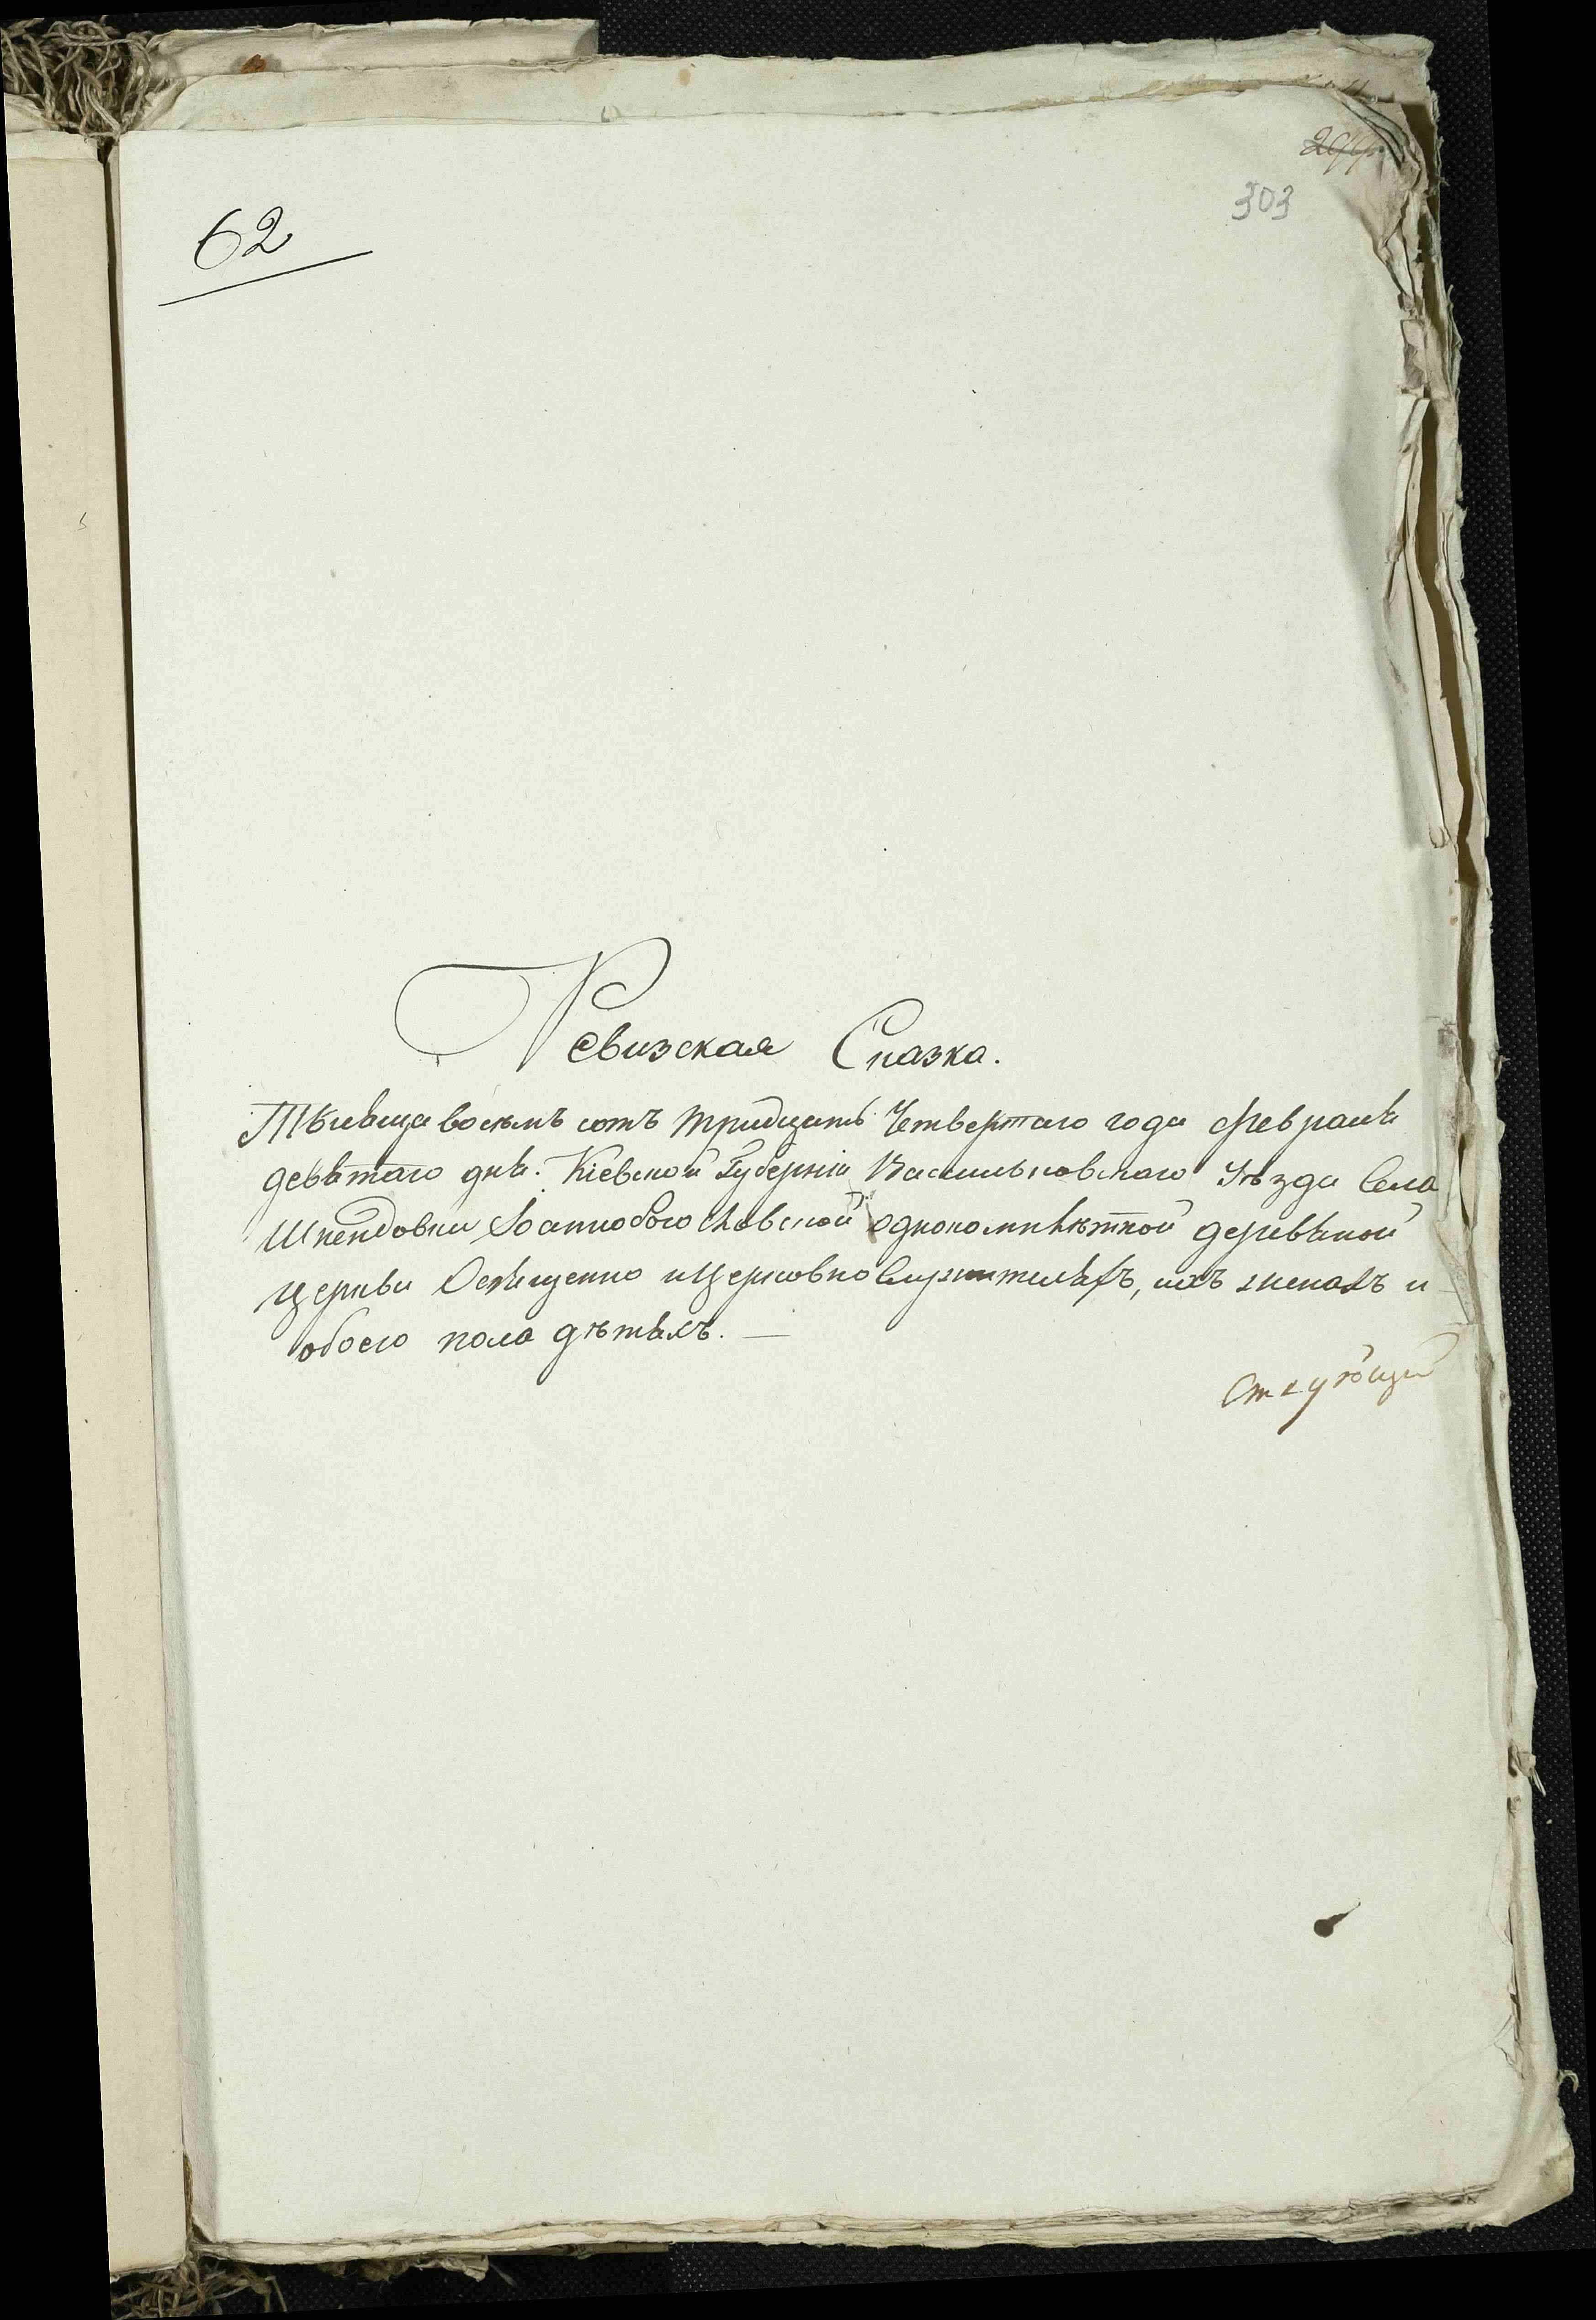 62
303
Ревизская Сказка.
Тысяща восемь сотъ тридцать Четвертаго года февраля
девятаго дня. Кіевской Губерніи Васильковскаго Уѣзда Села
Шпендовки Іоаннобогословской однокомплѣтной деревяной
церкви О священно и церковно Служителяхъ, ихъ женахъ и
обоего пола дѣтяхъ. —